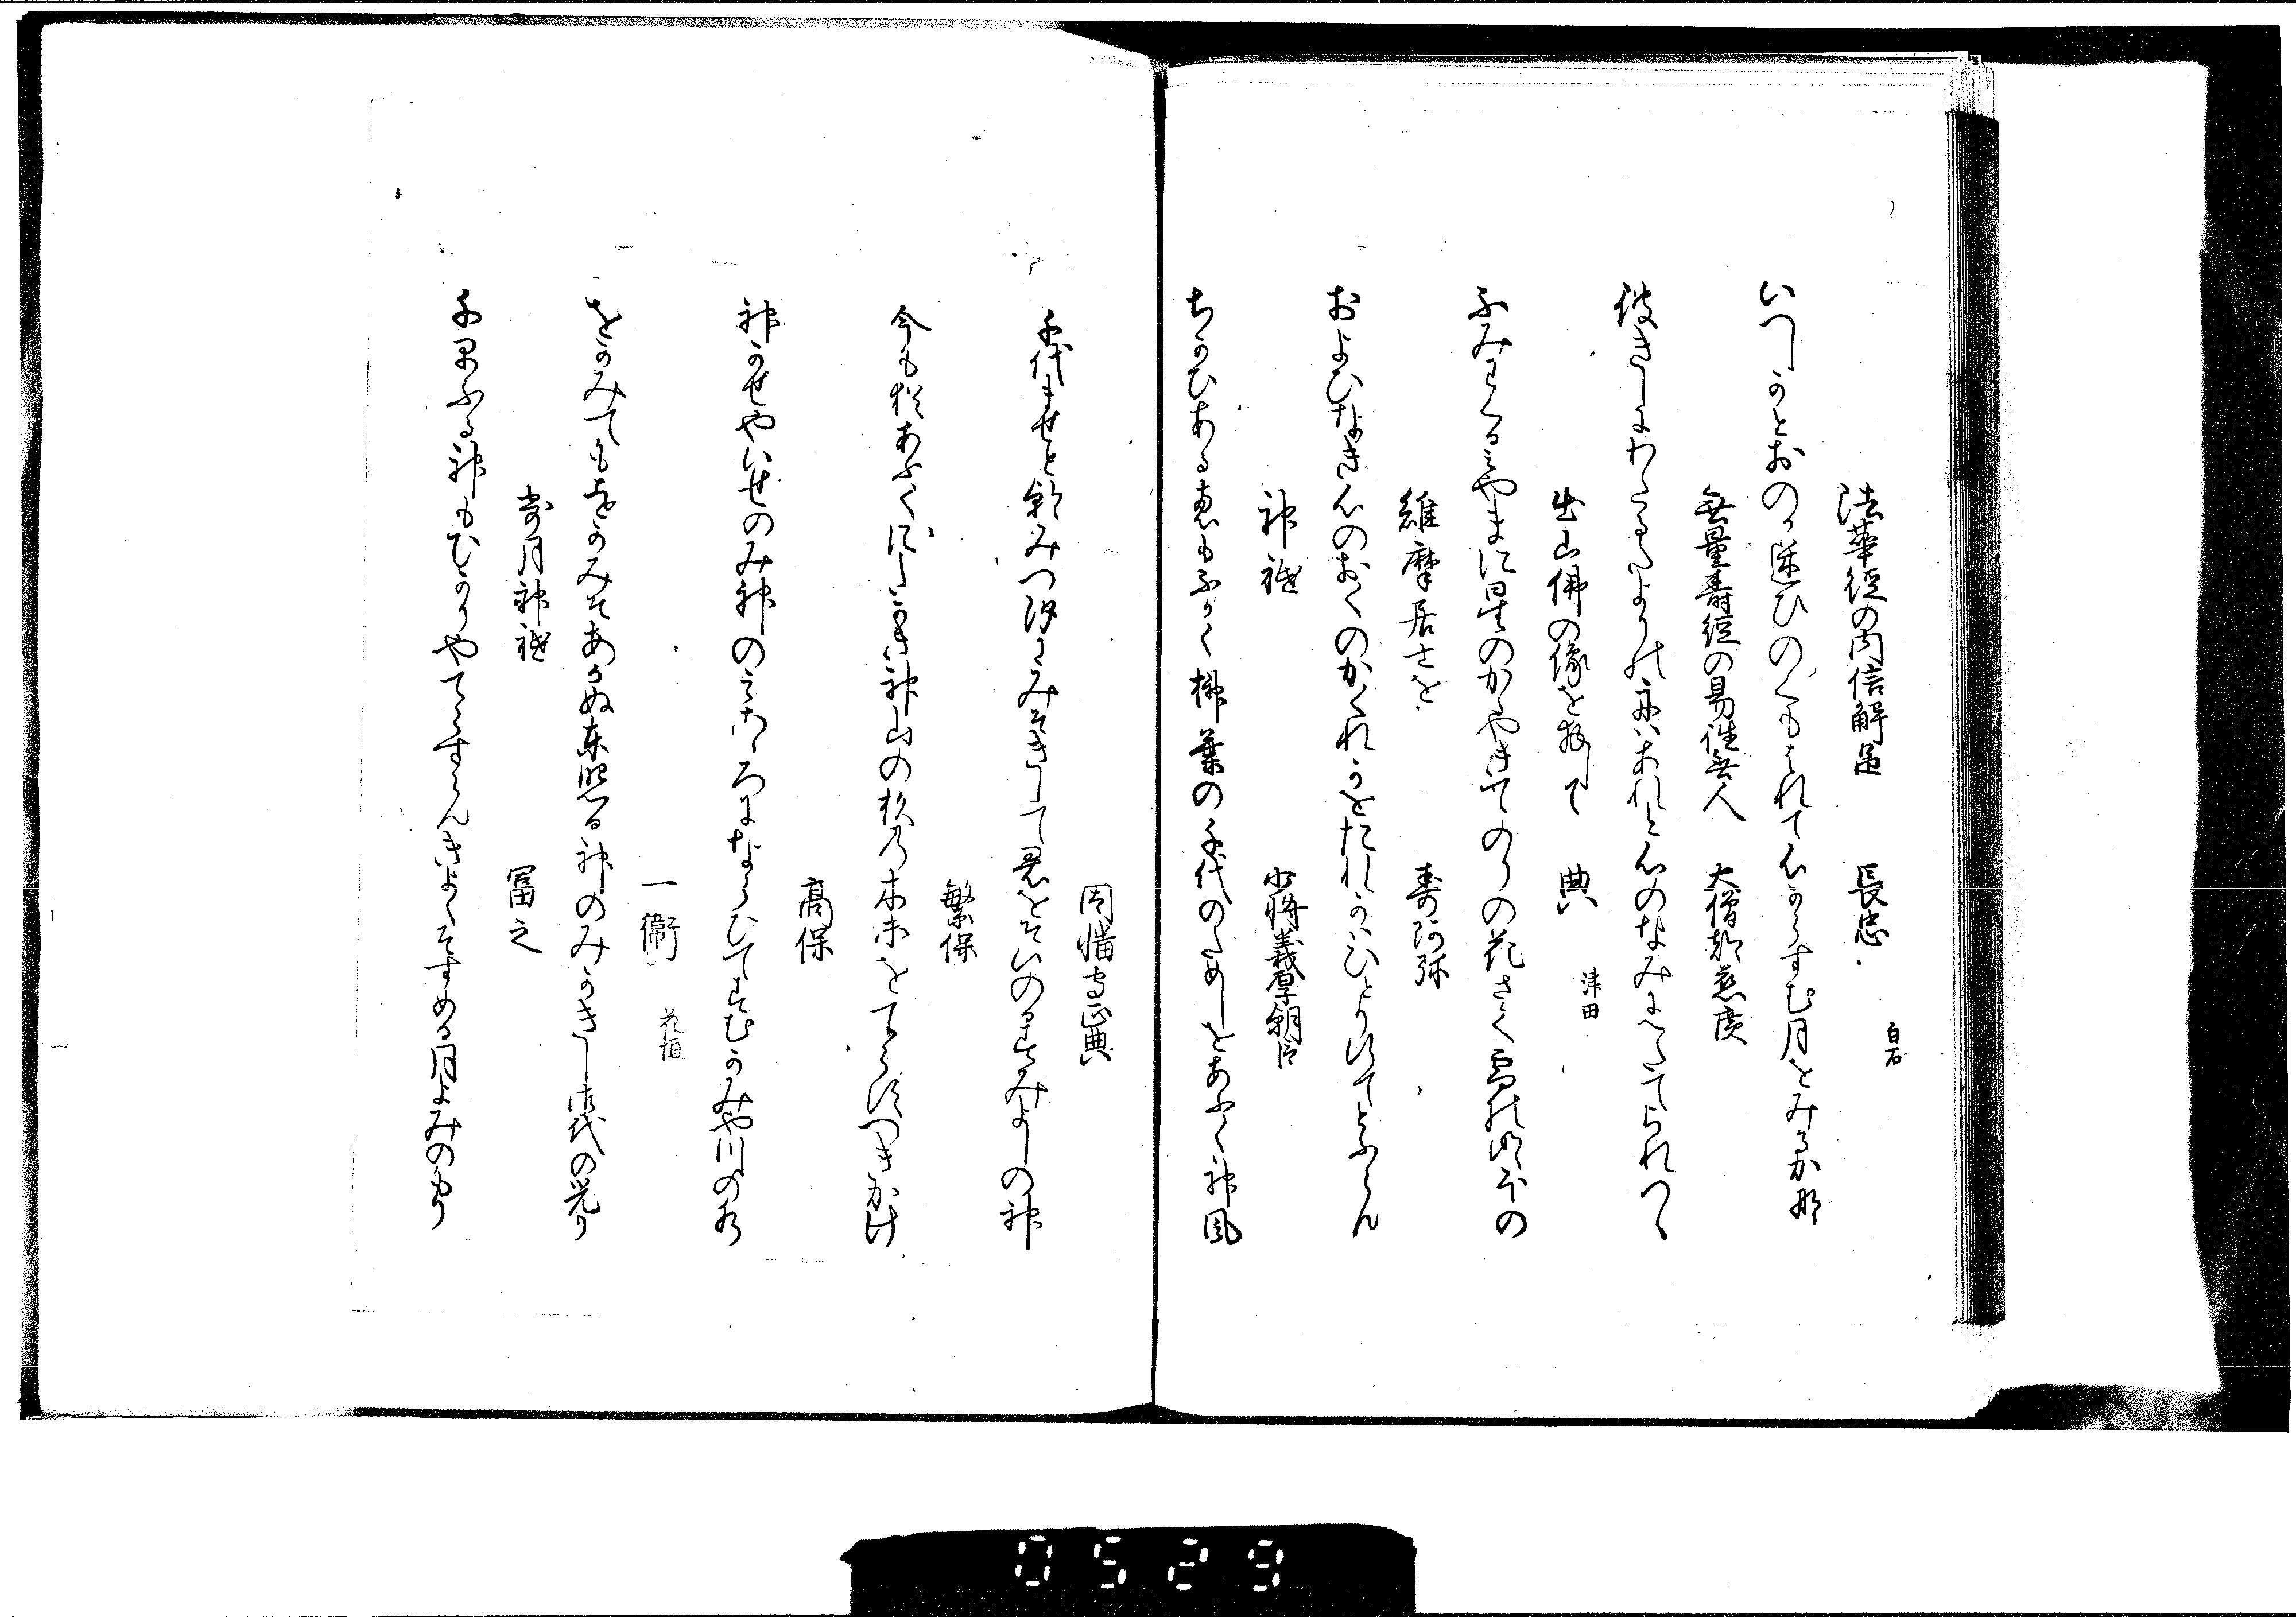 法華経の内信解品　長忠　白石
いつしかとおのか迷ひのくもはれて心にかゝらすむ月をみるか那
無量寿経の易往無人　大僧都慈広
彼きしにわたるたよりは有なれと心のなみにへたてられつゝ
出山佛の像を拝して　典　津田
ふみわくるみやまに星のかゝやきてのりの花さく雪の
維摩居士を　寿阿弥
およひなき心のおくのかくれかをたれかはひとりけてとふらん
神祇　少将義厚朝臣
ちかひある恵もふかく榊葉の千代のためしをあふく神風
因幡守正典
千代ませと朝みつ汐にみそきして君をそいのるすみよしの神
繁保
今も猶あふくにたかき神山の杉の木末をてらすつきかけ
高保
神かせやいせのみ神のみこゝろにならひてすむかみや川の水
一衛　花垣
をかみてもをかみそあかぬ東照る神のみかきし御代の光り
寄月神祇　冨之
千早ふる神もひかりやてらすらんきよくそすめる月よみのもり
0529